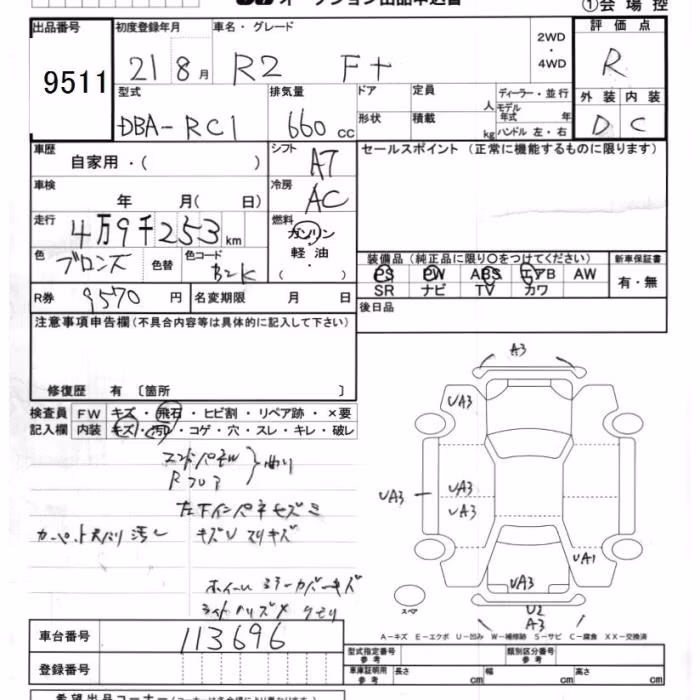 オークション出品申込書 ①会場控
出品番号 初度登録年月 車名・グレード 2WD・4WD 評価点
9511 21 8月 R2 F+ R
型式 排気量 ドア 定員 人 ディーラー・並行 外装 内装
DBA-RC1 660cc 形状 積載 kg モデル年式 年 D C
ハンドル 左・右
車歴 自家用・( ) シフト AT セールスポイント (正常に機能するものに限ります)
車検 年 月( 日) 冷房 AC
走行 4万9千253km 燃料 ガソリン・軽油・( )
色 ブロンズ 色替 色コード B2K 装備品 (純正品に限り○をつけてください) 新車保証書
PS PW ABS エアB AW 有・無
SR ナビ TV カワ
R券 9570円 名変期限 月 日 後日品
注意事項申告欄(不具合内容等は具体的に記入して下さい)
修復歴 有 〔箇所 〕
検査員 FW キズ・飛石・ヒビ割・リペア跡・×要
記入欄 内装 キズ・汚レ・コゲ・穴・スレ・キレ・破レ
Rフロア 曲り
キズU スリキズ
A3
UA3
UA3 UA3
UA3
UA1
UA3
U2
A3
スペア
A-キズ E-エクボ U-凹み W-補修跡 S-サビ C-腐食 XX-交換済
車台番号 113696 型式指定番号 参考 類別区分番号 参考
登録番号 車庫証明用 参考 長さ cm 幅 cm 高さ cm
希望出品コーナー